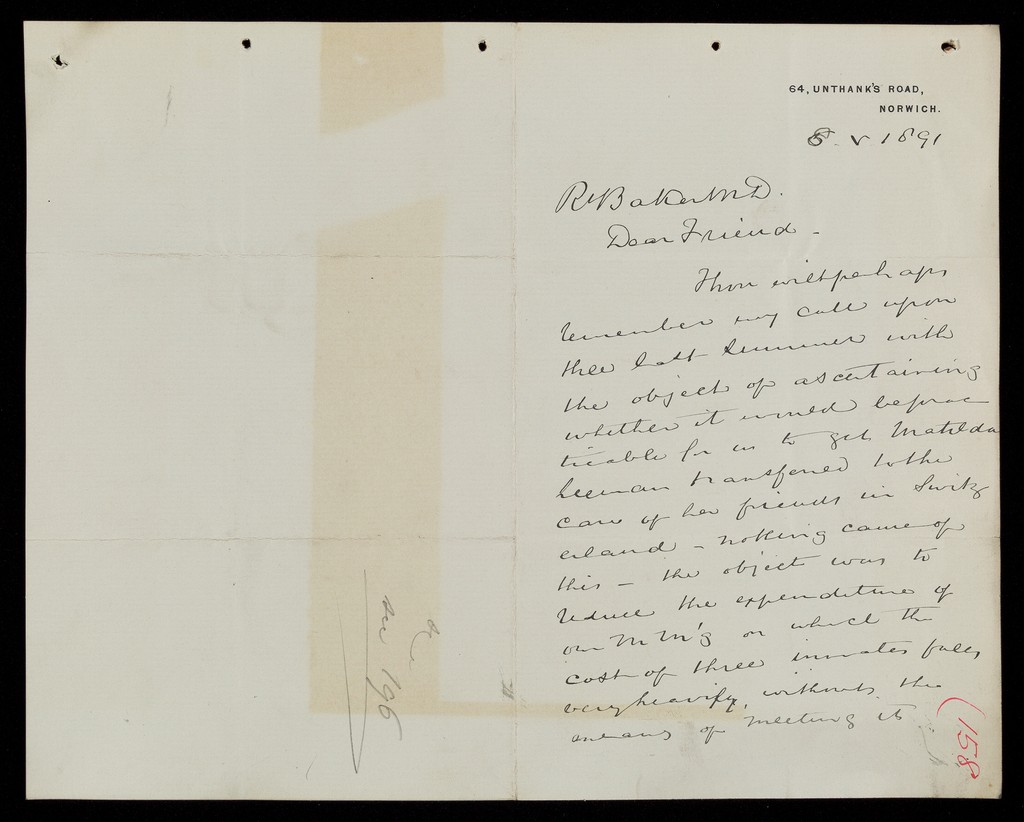 64, UNTHANK'S ROAD,
NORWICH.
8 V 1891
Rt Baker M D.
Dear Friend -
Thou wilt perhaps
remember my call upon
thee last summer with
the object of ascertaining
whether it would be prac
ticable for us to get Matilda
transferred to the
care of her friends in Switz
erland - nothing came of
this - the object was to
reduce the expenditure of
our M M'g on which the
cost of three inmates falls
very heavily, without the
means of meeting it
(158
196